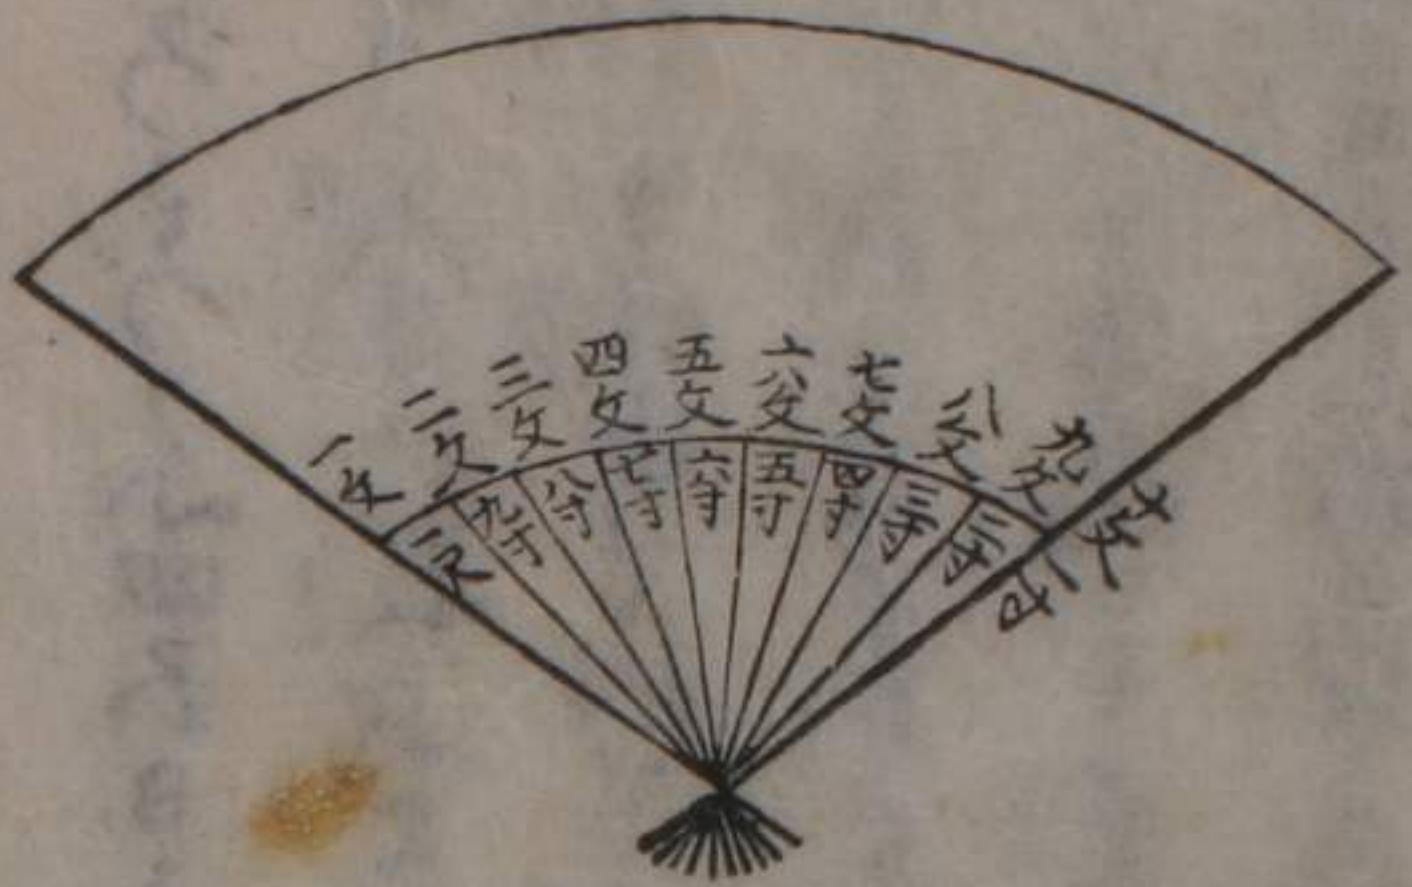 一文
二文
三文
四文
五文
六文
七文
八文
九文
十文
一尺
九寸
八寸
七寸
六寸
五寸
四寸
三寸
二寸
一寸